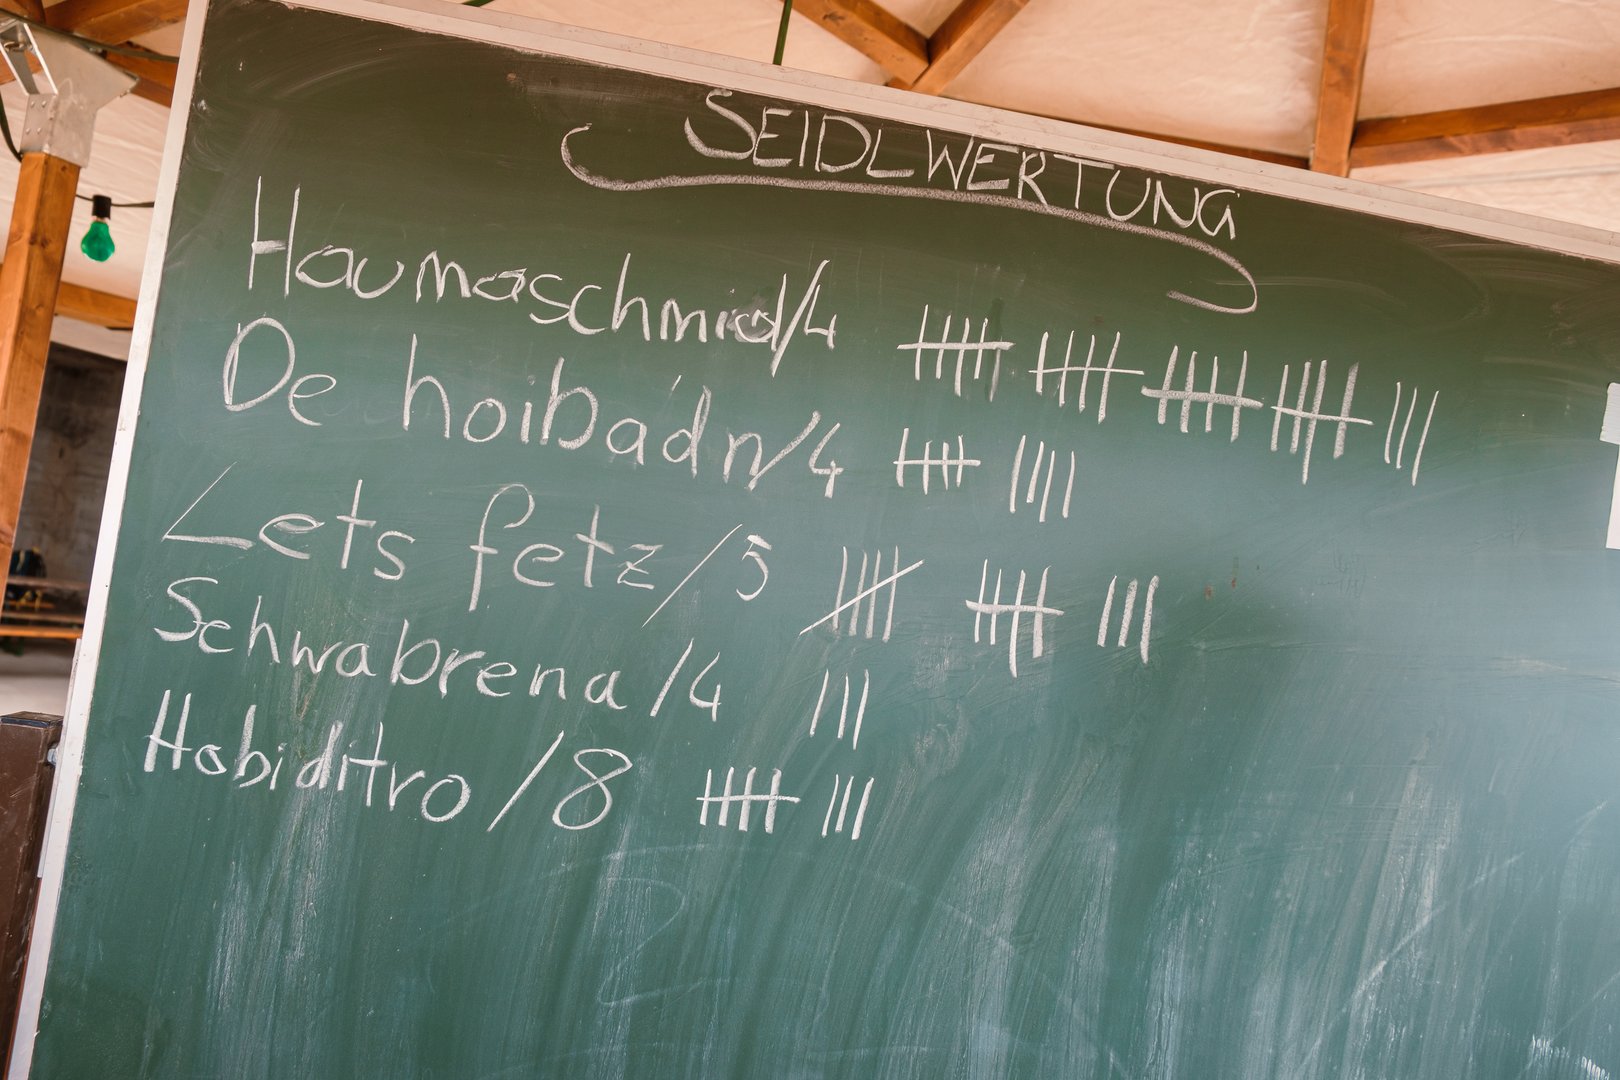 SEIDLWERTUNG
Haumaschmid/4 𝍸 𝍸 𝍸 𝍸 |||
De hoibadn/4 𝍸 ||||
Lets fetz/5 𝍸 𝍸 |||
Schwabrena/4 |||
Habiditro/8 𝍸 |||